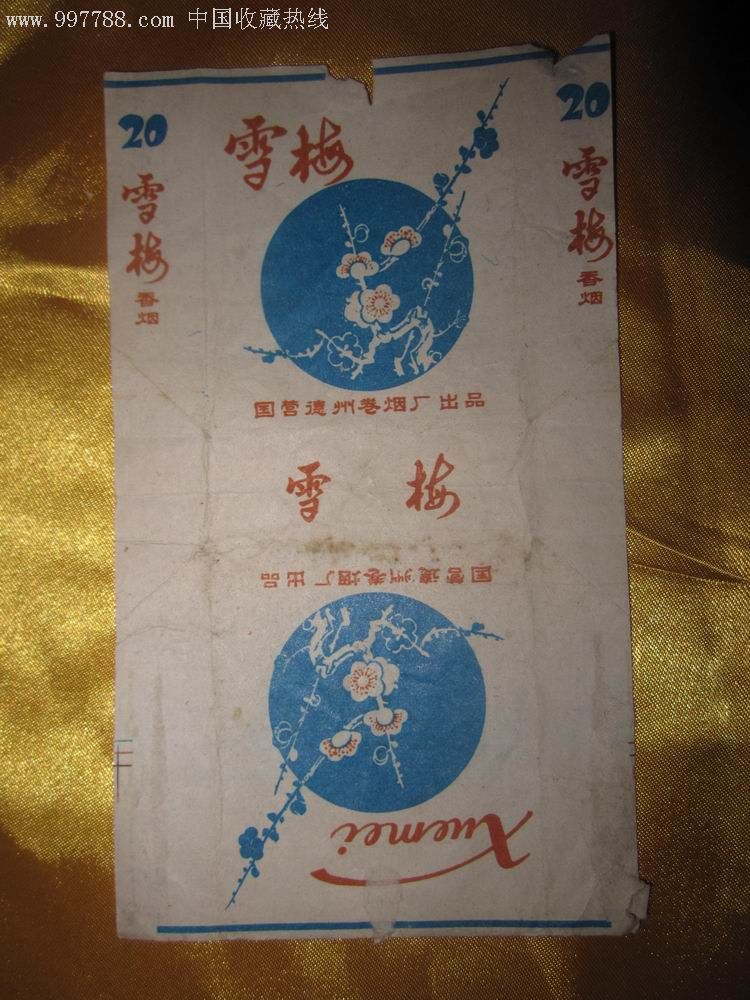 www.997788.com 中国收藏热线
20
雪梅
香烟
雪梅
国营德州卷烟厂出品
20
雪梅
香烟
雪梅
国营德州卷烟厂出品
Xuemei